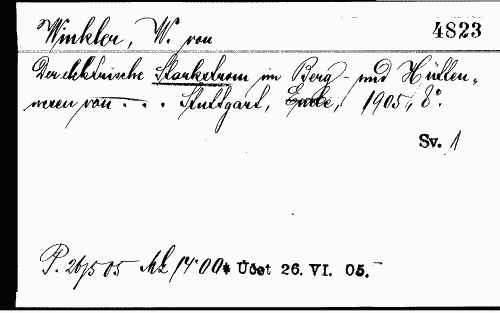 Winkler, W. von
4823
Der elektrische Starkstrom im Berg- und Hütten-
wesen von . . . Stuttgart, Enke, 1905, 8°.
Sv. 1
P. 26/5 05 Mk 14·00 Účet 26. VI. 05.